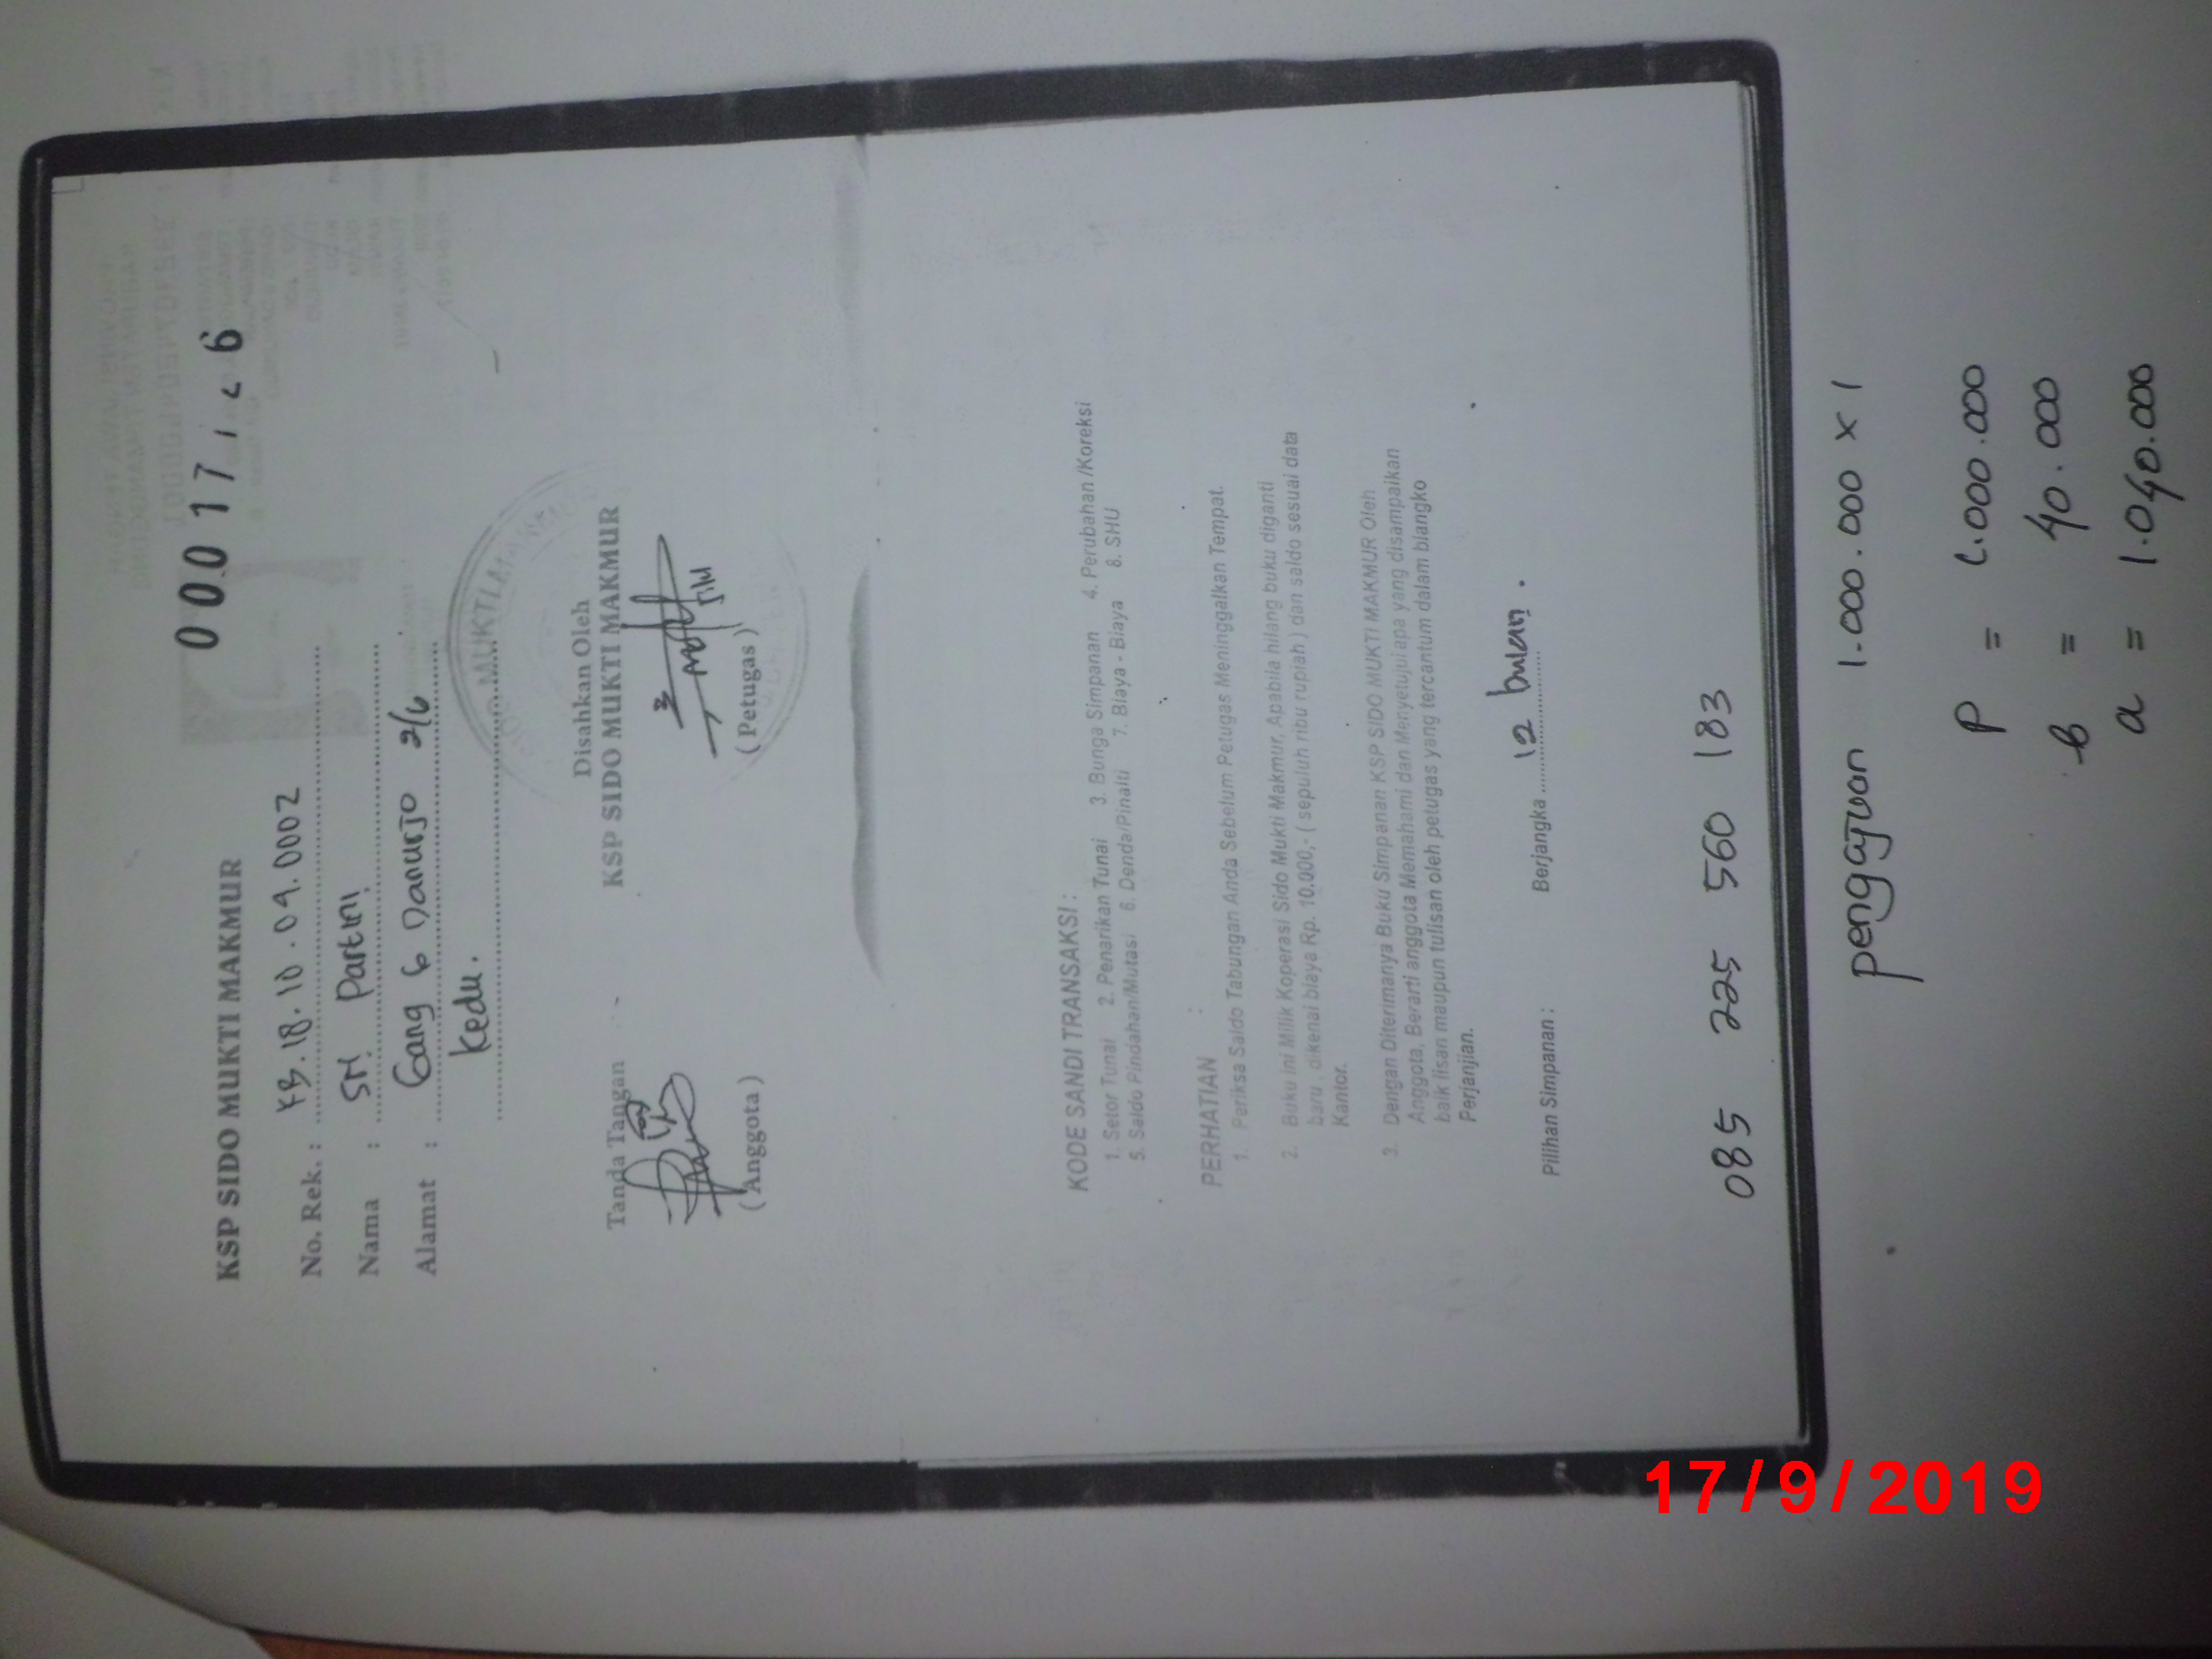 KSP SIDO MUKTI MAKMUR
No. Rek. : YB.18.10.09.0002
Nama : Partini
Alamat : Gang 6 Danurjo 2/6
Kedu.
Disahkan Oleh
Tanda Tangan KSP SIDO MUKTI MAKMUR
(Anggota) (Petugas)
SIDO MUKTI MAKMUR
KODE SANDI TRANSAKSI :
1. Setor Tunai 2. Penarikan Tunai 3. Bunga Simpanan 4. Perubahan /Koreksi
5. Saldo Pindahan/Mutasi 6. Denda/Pinalti 7. Biaya - Biaya 8. SHU
PERHATIAN :
1. Periksa Saldo Tabungan Anda Sebelum Petugas Meninggalkan Tempat.
2. Buku ini Milik Koperasi Sido Mukti Makmur, Apabila hilang buku diganti
baru , dikenai biaya Rp. 10.000,- ( sepuluh ribu rupiah ) dan saldo sesuai data
Kantor.
3. Dengan Diterimanya Buku Simpanan KSP SIDO MUKTI MAKMUR Oleh
Anggota, Berarti anggota Memahami dan Menyetujui apa yang disampaikan
baik lisan maupun tulisan oleh petugas yang tercantum dalam blangko
Perjanjian.
Pilihan Simpanan : Berjangka 12 bulan.
085 225 560 183
pengajuan 1.000.000 x 1
P = 1.000.000
b = 40.000
a = 1.040.000
17/9/2019